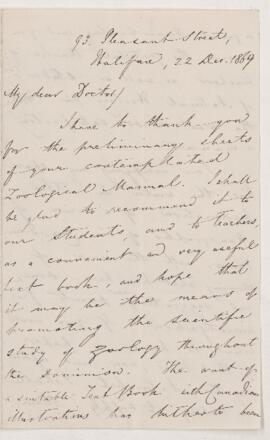 93. Pleasant Street,
Halifax, 22 Dec. 1869
My dear Doctor/
I have to thank you
for the preliminary sheets
of your contemplated
Zoological Manual. I shall
be glad to recommend it to
our Students, and to teachers,
as a convenient and very useful
text book, and hope that
it may be the means of
promoting the scientific
study of Zoology throughout
the Dominion. The want of
a suitable Text Book with Canadian
illustrations has hitherto been